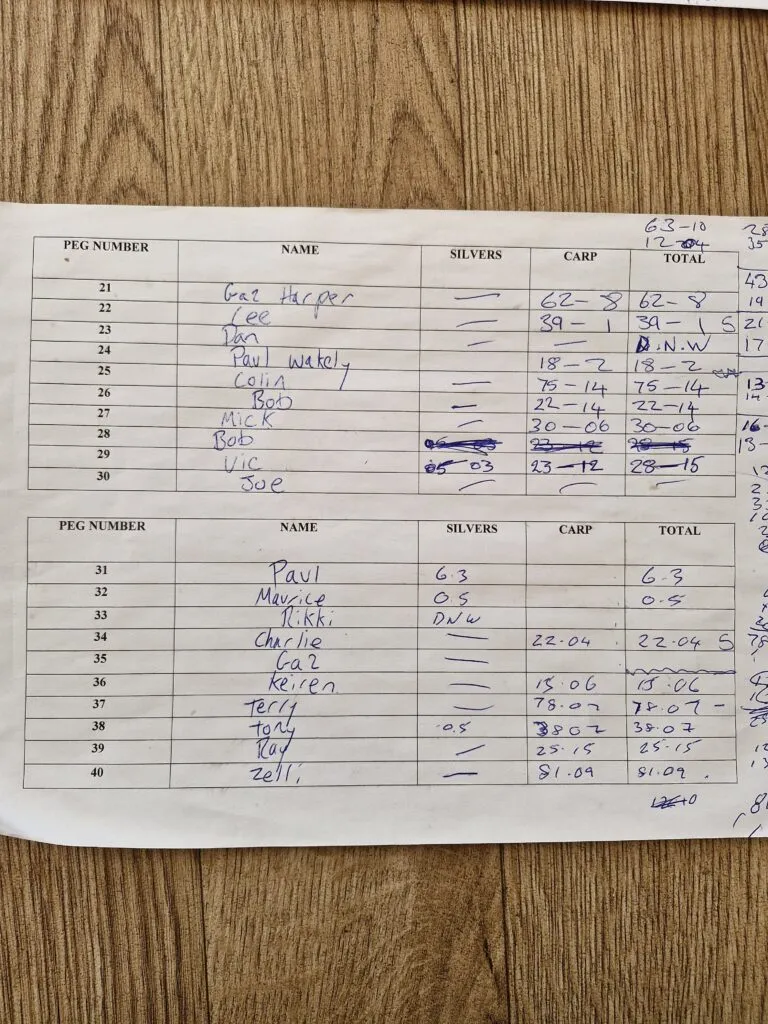 63-10
12-04
PEG NUMBER NAME SILVERS CARP TOTAL
21 Gaz Harper — 62-8 62-8
22 Lee — 39-1 39-1 S
23 Dan — — D.N.W
24 Paul Wakely 18-2 18-2
25 Colin — 75-14 75-14
26 Bob — 22-14 22-14
27 Mick — 30-06 30-06
28 Bob
29 Vic 05 03 23-12 28-15
30 Joe — — —
PEG NUMBER NAME SILVERS CARP TOTAL
31 Paul 6.3 6.3
32 Maurice 0.5 0.5
33 Rikki DNW
34 Charlie — 22.04 22.04 S
35 Gaz —
36 Keiren — 15.06 15.06
37 Terry — 78.07 78.07 -
38 Tony 0.5 38 07 38.07
39 Ray — 25.15 25.15
40 Zelli — 81.09 81.09